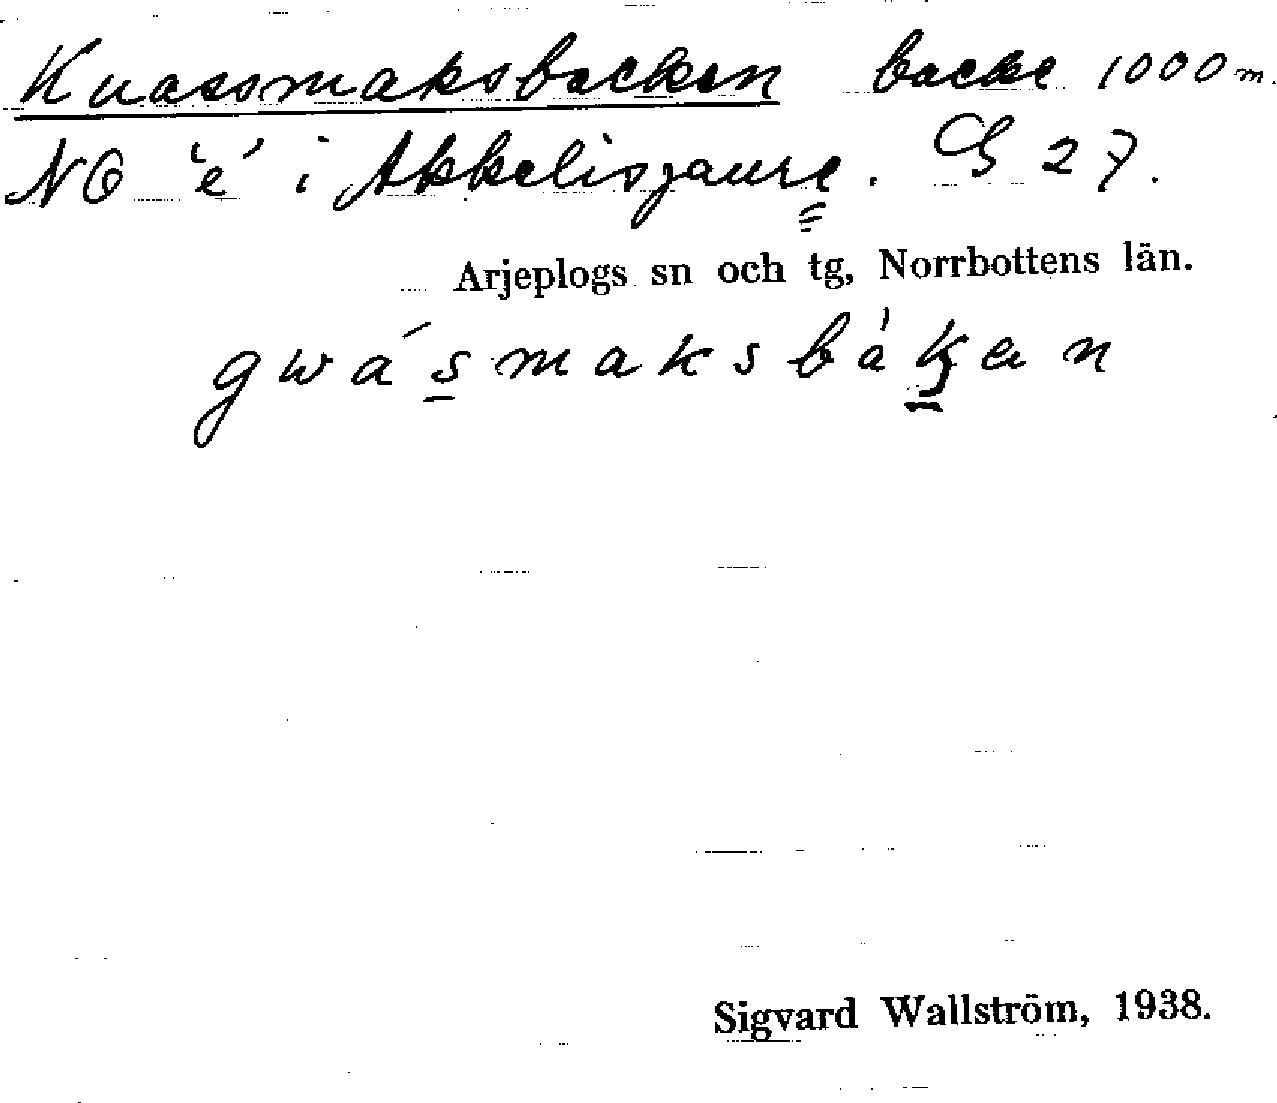 Kuassmaksbacken backe 1000 m.
NO 'e' i Akkelisjaure. G 27.
Arjeplogs sn och tg, Norrbottens län.
gwásmaksbàkan
Sigvard Wallström, 1938.